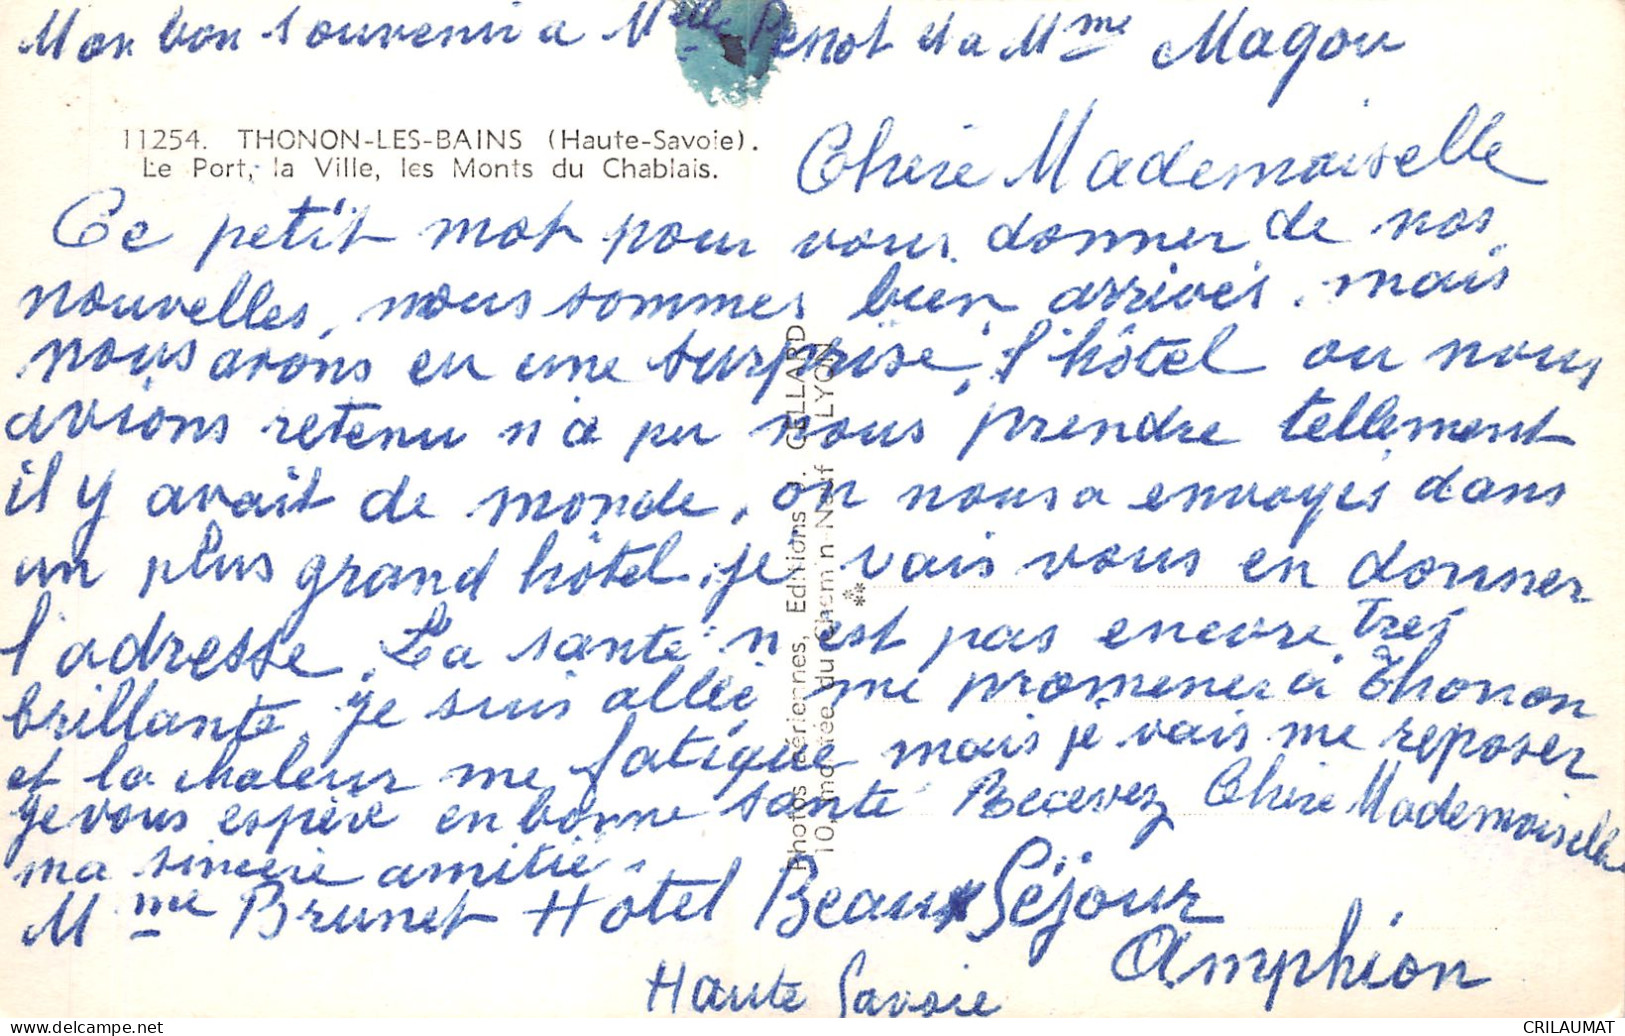 Mon bon souvenir a Melle Penot et a Mme Magou
11254. THONON-LES-BAINS (Haute-Savoie).
Le Port, la Ville, les Monts du Chablais.
Chère Mademoiselle
Ce petit mot pour vous donner de nos
nouvelles, nous sommes bien arrivés, mais
nous avons eu une surprise, l'hôtel ou nous
avions retenu n'a pu nous prendre tellement
il y avait de monde, on nous a envoyés dans
un plus grand hôtel, je vais vous en donner
l'adresse. La santé n'est pas encore très
brillante, je suis allée me promener à Thonon
et la chaleur me fatigue mais je vais me reposer
Je vous espère en bonne santé Recevez Chère Mademoiselle
ma sincère amitié
Mme Brunet Hotel Beau Séjour
Amphion
Haute Savoie
Photos aériennes, Editions J. CELLARD
10, montée du Chemin-Neuf LYON
CRILAUMAT